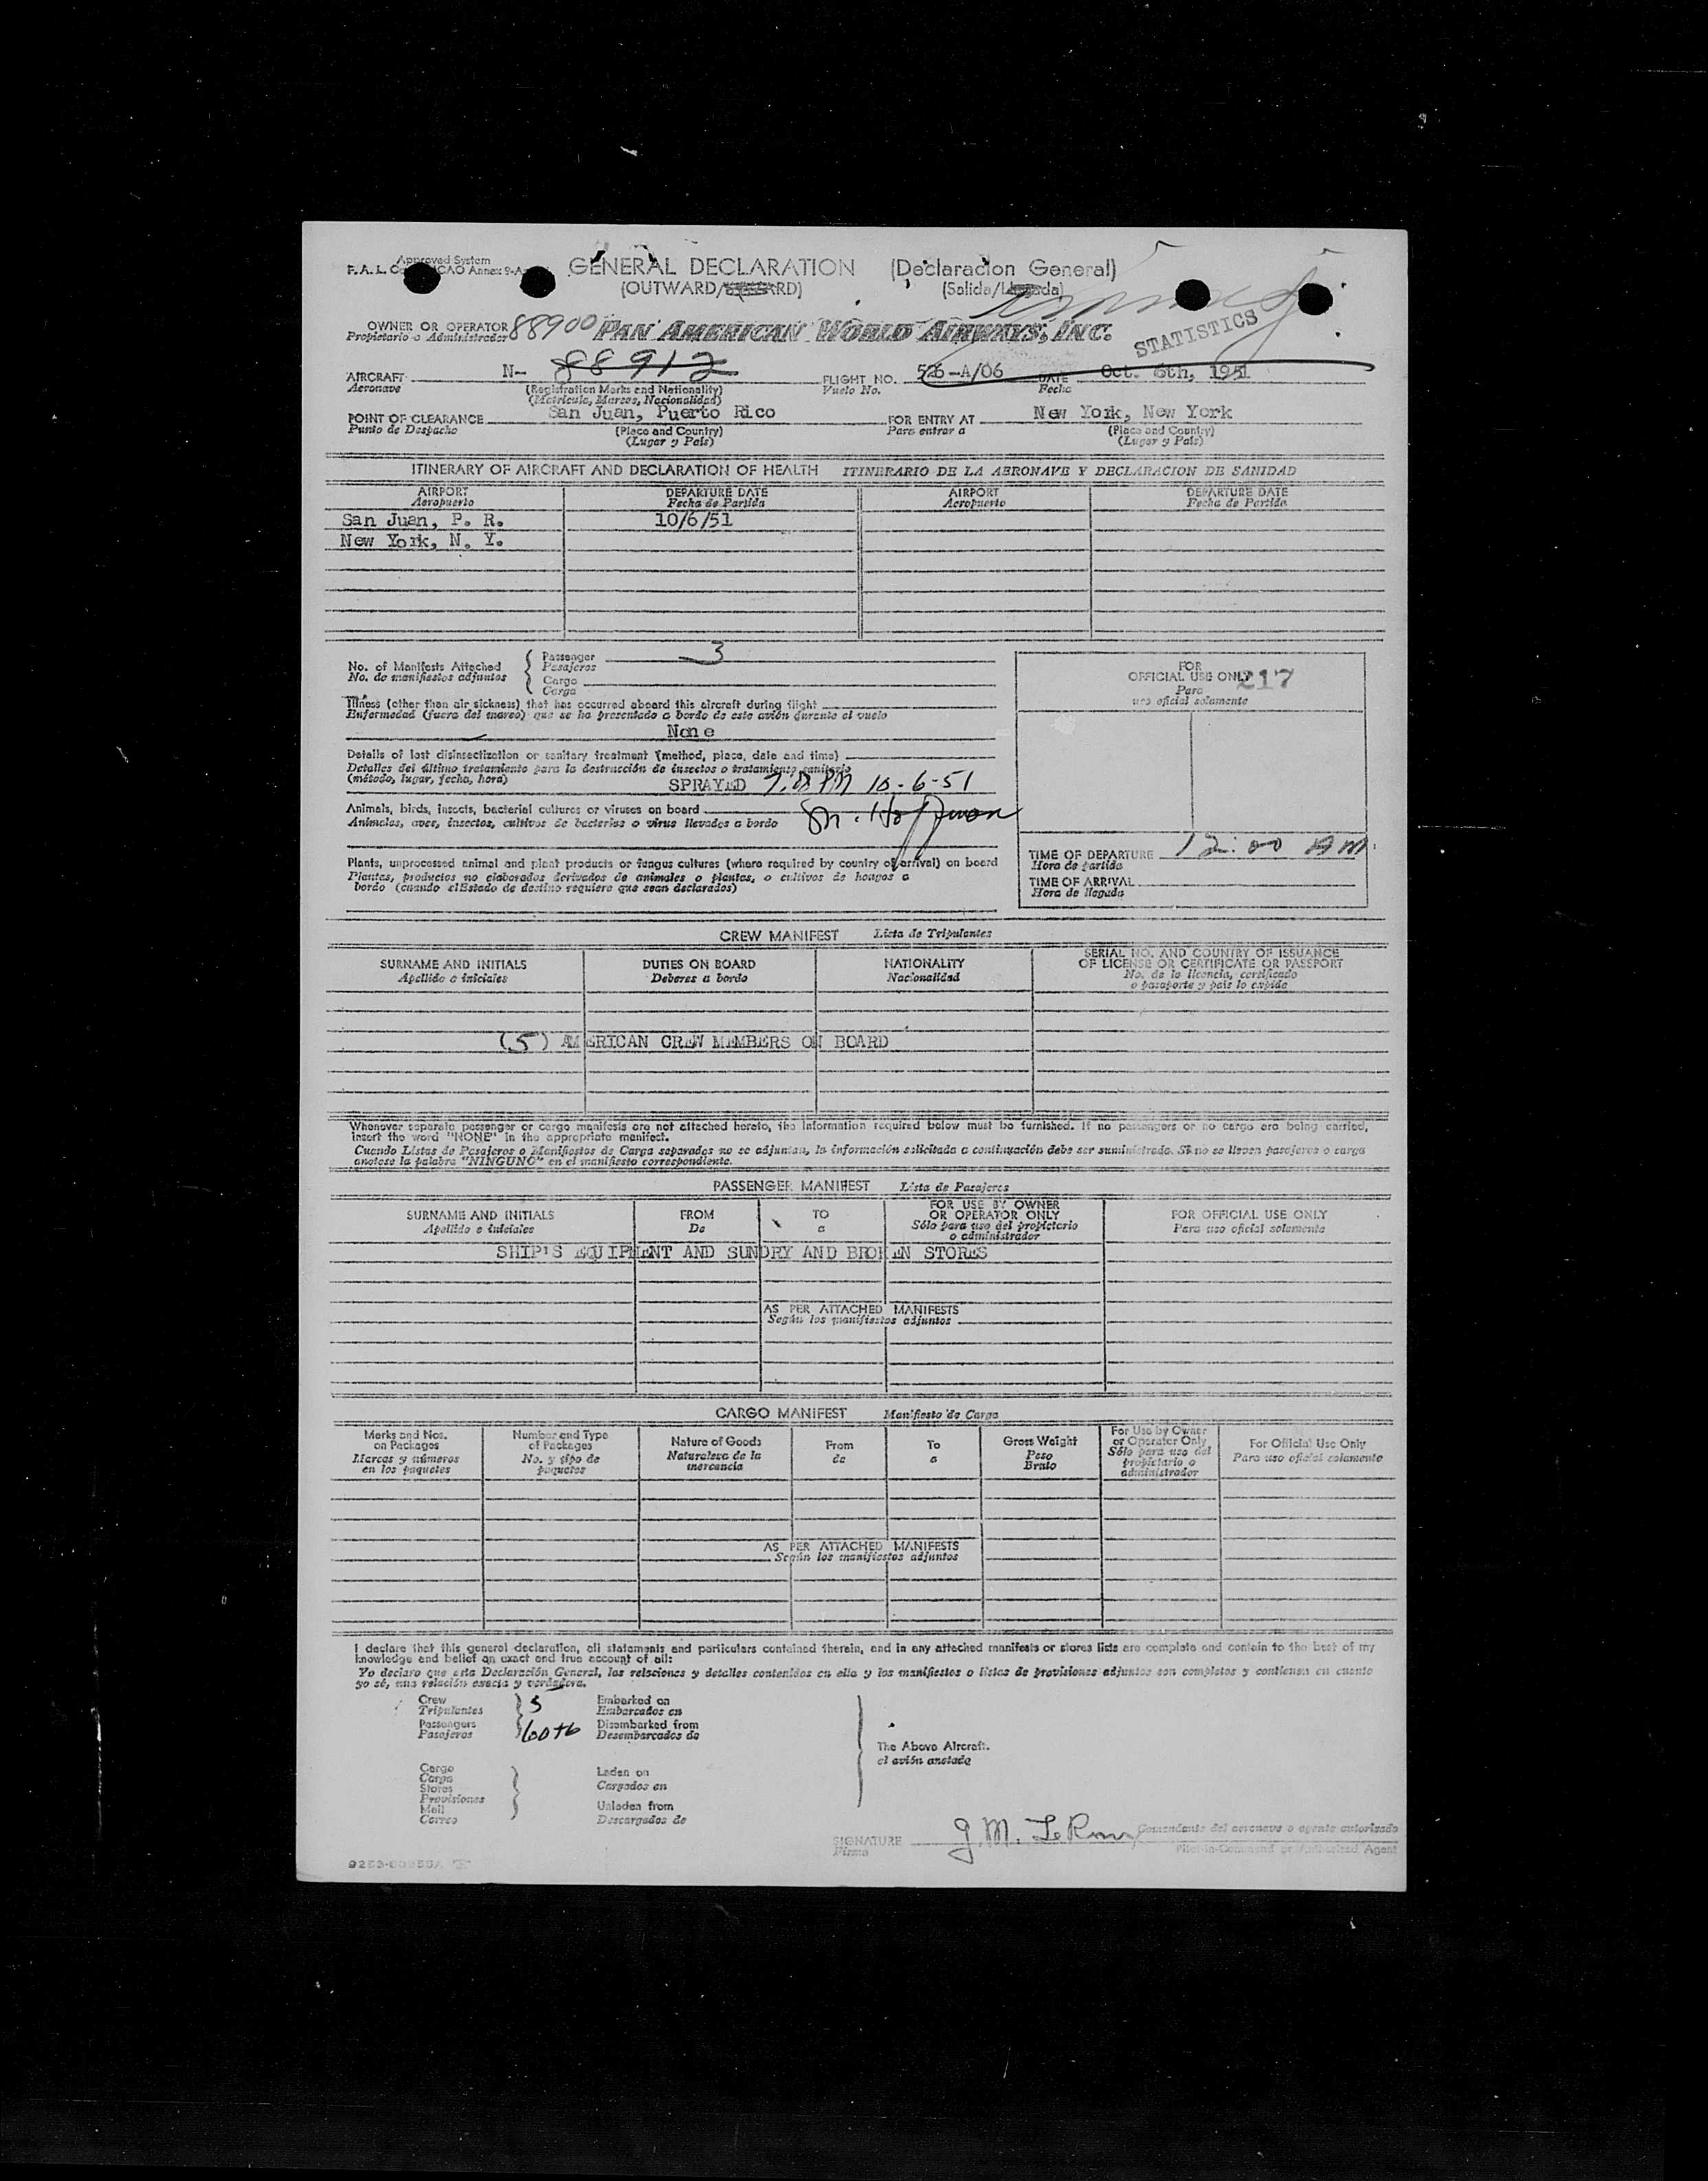 Approved System
GENERAL DECLARATION (Declaracion General)
F. A. L. ICAO Annex 9-A
(OUTWARD/ (Salida/
OWNER OR OPERATOR 88900 PAN AMERICAN WORLD AIRWAYS, INC.
Propietario o Administrador
STATISTICS
AIRCRAFT N- 88912 FLIGHT NO. 526-A/06 DATE Oct. 6th, 1951
Aeronave (Registration Marks and Nationality) Vuelo No. Fecha
(Matricula, Marcas, Nacionalidad)
POINT OF CLEARANCE San Juan, Puerto Rico FOR ENTRY AT New York, New York
Punto de Despacho (Place and Country) Para entrar a (Place and Country)
(Lugar y País) (Lugar y País)
ITINERARY OF AIRCRAFT AND DECLARATION OF HEALTH ITINERARIO DE LA AERONAVE Y DECLARACION DE SANIDAD
AIRPORT DEPARTURE DATE AIRPORT DEPARTURE DATE
Aeropuerto Fecha de Partida Aeropuerto Fecha de Partida
San Juan, P. R. 10/6/51
New York, N. Y.
No. of Manifests Attached Passenger 3
No. de manifiestos adjuntos Pasajeros
Cargo
Carga
FOR
OFFICIAL USE ONLY 217
Para
uso oficial solamente
Illness (other than air sickness) that has occurred aboard this aircraft during flight
Enfermedad (fuera del mareo) que se ha presentado a bordo de este avión durante el vuelo
None
Details of last disinsectization or sanitary treatment (method, place, date and time)
Detalles del último tratamiento para la destrucción de insectos o tratamiento sanitario
(método, lugar, fecha, hora)
SPRAYED PM 10-6-51
Animals, birds, insects, bacterial cultures or viruses on board
Animales, aves, insectos, cultivos de bacterias o virus llevados a bordo
M. Hoffman
Plants, unprocessed animal and plant products or fungus cultures (where required by country of arrival) on board
Plantas, productos no elaborados derivados de animales o plantas, o cultivos de hongos a
bordo (cuando el Estado de destino requiere que sean declarados)
TIME OF DEPARTURE 12:00 AM
Hora de partida
TIME OF ARRIVAL
Hora de llegada
CREW MANIFEST Lista de Tripulantes
SURNAME AND INITIALS DUTIES ON BOARD NATIONALITY SERIAL NO. AND COUNTRY OF ISSUANCE
OF LICENSE OR CERTIFICATE OR PASSPORT
Apellido e iniciales Deberes a bordo Nacionalidad No. de la licencia, certificado
o pasaporte y país lo expide
(5) AMERICAN CREW MEMBERS ON BOARD
Whenever separate passenger or cargo manifests are not attached hereto, the information required below must be furnished. If no passengers or no cargo are being carried,
insert the word "NONE" in the appropriate manifest.
Cuando Listas de Pasajeros o Manifiestos de Carga separados no se adjuntan, la información solicitada a continuación debe ser suministrada. Si no se llevan pasajeros o carga
anotese la palabra "NINGUNO" en el manifiesto correspondiente.
PASSENGER MANIFEST Lista de Pasajeros
SURNAME AND INITIALS FROM TO FOR USE BY OWNER OR OPERATOR ONLY FOR OFFICIAL USE ONLY
Apellido e iniciales De a Sólo para uso del propietario o administrador Para uso oficial solamente
SHIP'S EQUIPMENT AND SUNDRY AND BROKEN STORES
AS PER ATTACHED MANIFESTS
Según los manifiestos adjuntos
CARGO MANIFEST Manifiesto de Carga
Marks and Nos. on Packages Number and Type of Packages Nature of Goods From To Gross Weight For Use by Owner or Operator Only For Official Use Only
Marcas y números en los paquetes No. y tipo de paquetes Naturaleza de la mercancia de a Peso Bruto Sólo para uso del propietario o administrador Para uso oficial solamente
AS PER ATTACHED MANIFESTS
Según los manifiestos adjuntos
I declare that this general declaration, all statements and particulars contained therein, and in any attached manifests or stores lists are complete and contain to the best of my
knowledge and belief an exact and true account of all:
Yo declaro que esta Declaración General, las relaciones y detalles contenidos en ella y los manifiestos o listas de provisiones adjuntos son completos y contienen en cuanto
yo sé, una relación exacta y verdadera.
Crew 5 Embarked on
Tripulantes Embarcados en
Passengers 60+6 Disembarked from
Pasajeros Desembarcados de
The Above Aircraft.
el avión anotado
Cargo Laden on
Carga Cargados en
Stores
Provisiones
Mail Unladen from
Correo Descargados de
SIGNATURE Comandante del aeronave o agente autorizado
Firma Pilot-in-Command or Authorized Agent